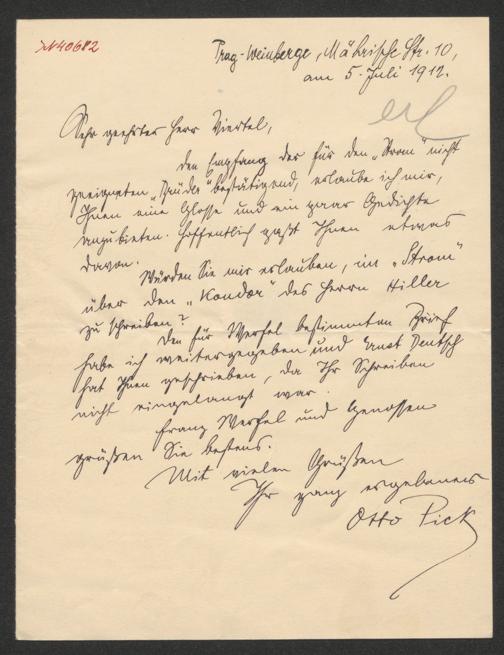 N40612
Prag-Weinberge, Mährische Str. 10,
am 5. Juli 1912.
erl
Sehr geehrter Herr Viertel,
den Empfang der für den „Strom" nicht
geeigneten bestätigend, erlaube ich mir,
Ihnen eine Glosse und ein paar Gedichte
anzubieten. Hoffentlich paßt Ihnen etwas
davon.
Würden Sie mir erlauben, im „Strom"
über den „Kondor" des Herrn Hiller
zu schreiben?
Den für Werfel bestimmten Brief
habe ich weitergegeben und Ernst Deutsch
hat Ihnen geschrieben, da Ihr Schreiben
nicht eingelangt war.
Franz Werfel und Genossen
grüßen Sie bestens.
Mit vielen Grüßen
Ihr ganz ergebener
Otto Pick